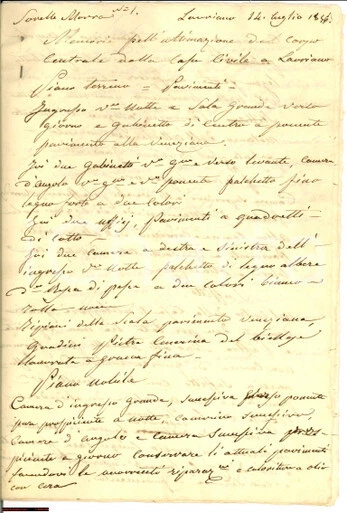 Lauriano 14 luglio 18
Memorie pell'ultimazione del corpo
Centrale della Casa Civile a Lauriano
Piano terreno = Pavimenti =
Ingresso v.so Notte e Sala Grande verso
giorno e Gabinetto di Centro a ponente
pavimento alla Veneziana.
Ivi due Gabinetti v.so e verso levante, Camera
d'angolo v.so e v.so ponente palchetto fino
legno forte a due colori
Ivi due uffizj, pavimenti a quadretti
di Cotto
Ivi due Camere a destra e sinistra dell'
ingresso v.so Notte palchetto di legno albera
a due colori bianco e
Ripiani della Scala pavimento Veneziana,
Gradini Pietra
lavorata a grana fina
Piano Nobile
Camera d'ingresso grande, successiva ponente
pur prospiciente a notte, camerino successivo,
Camera d'angolo e camera successiva
a giorno conservare li attuali pavimenti
facendovi le occorrenti riparaz.ni e coloritura a olio
con cera